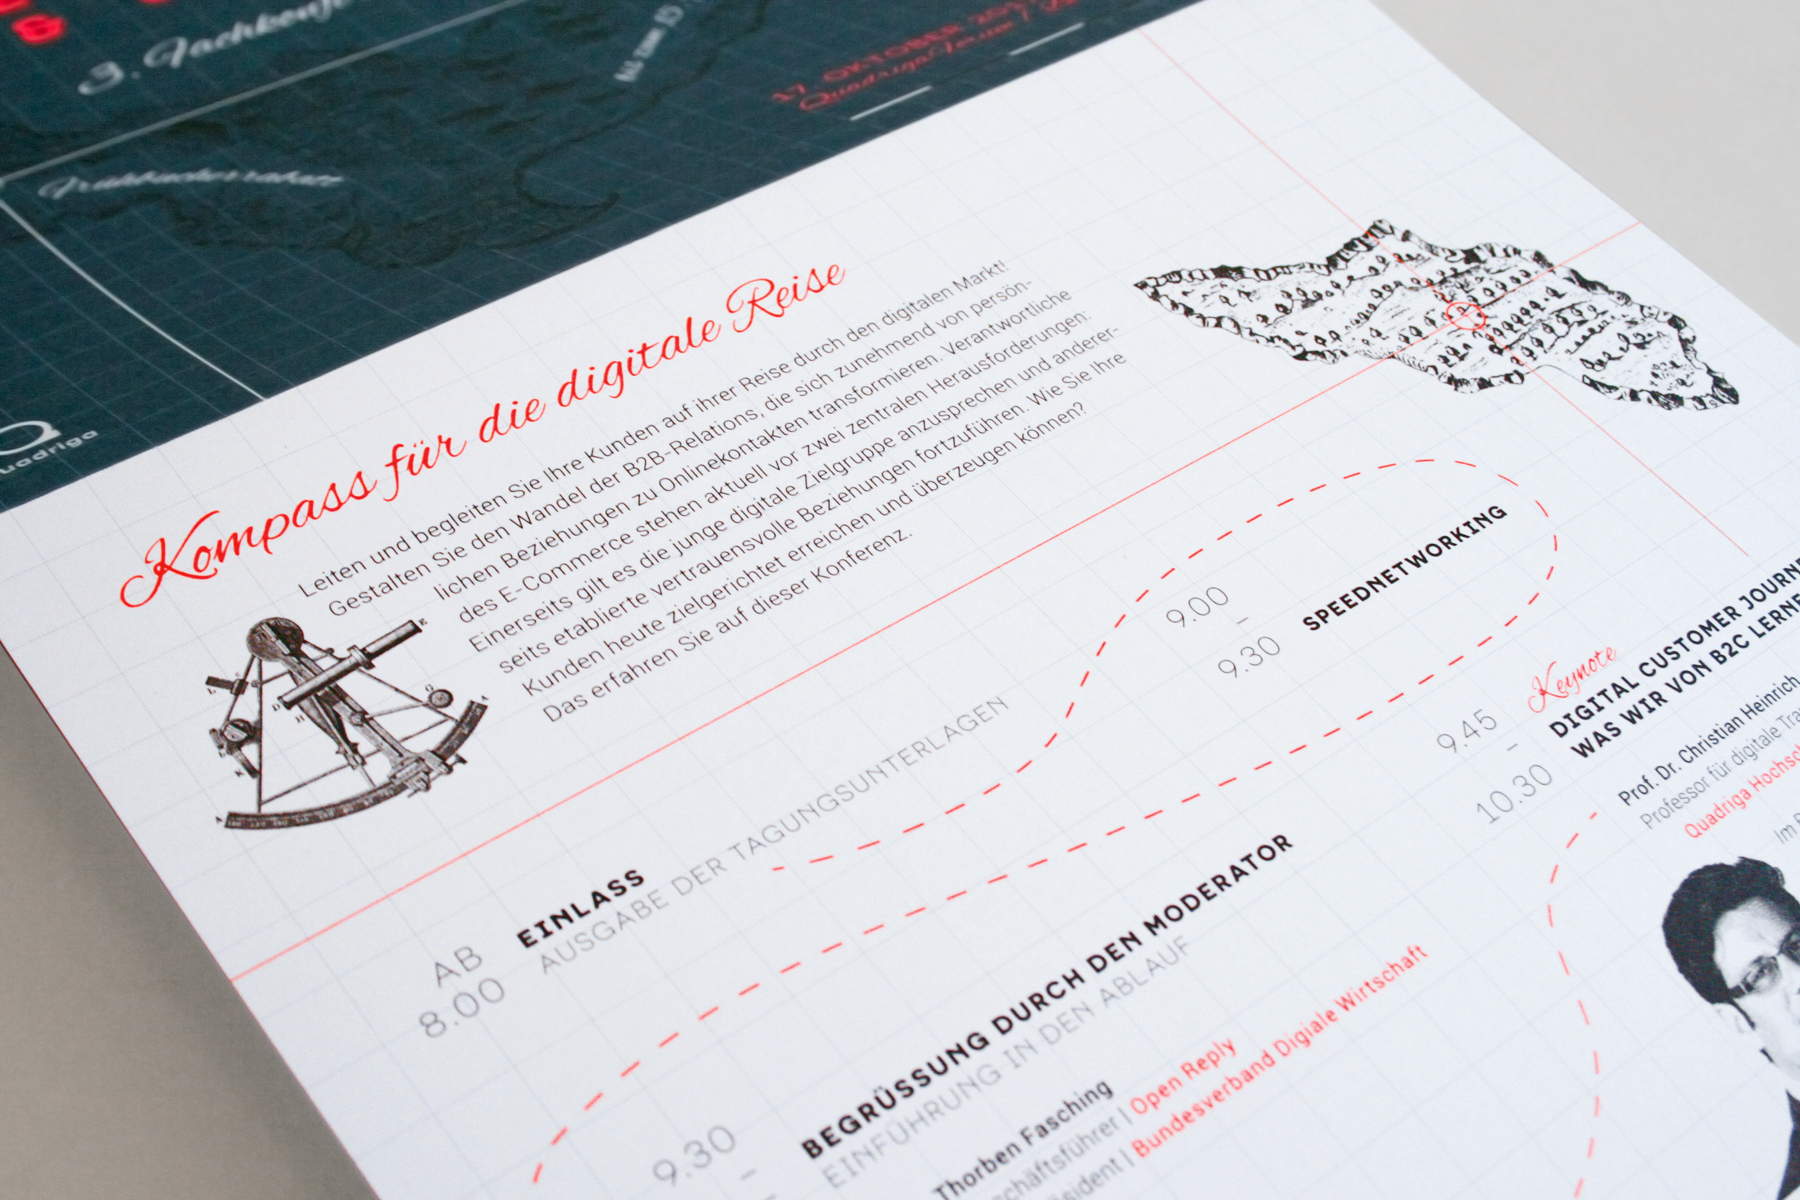 3. Fachkonfe
17. OKTOBER 201
QuadrigaForum /
Frühbucherrabatt
uadriga
Kompass für die digitale Reise
Leiten und begleiten Sie Ihre Kunden auf ihrer Reise durch den digitalen Markt!
Gestalten Sie den Wandel der B2B-Relations, die sich zunehmend von persön-
lichen Beziehungen zu Onlinekontakten transformieren. Verantwortliche
des E-Commerce stehen aktuell vor zwei zentralen Herausforderungen:
Einerseits gilt es die junge digitale Zielgruppe anzusprechen und anderer-
seits etablierte vertrauensvolle Beziehungen fortzuführen. Wie Sie Ihre
Kunden heute zielgerichtet erreichen und überzeugen können?
Das erfahren Sie auf dieser Konferenz.
AB
8.00
EINLASS
AUSGABE DER TAGUNGSUNTERLAGEN
9.00
–
9.30
SPEEDNETWORKING
9.30
–
BEGRÜSSUNG DURCH DEN MODERATOR
EINFÜHRUNG IN DEN ABLAUF
Thorben Fasching
schäftsführer | Open Reply
sident | Bundesverband Digiale Wirtschaft
9.45
–
10.30
Keynote
DIGITAL CUSTOMER JOURNE
WAS WIR VON B2C LERNE
Prof. Dr. Christian Heinrich
Professor für digitale Tra
Quadriga Hochsc
Im